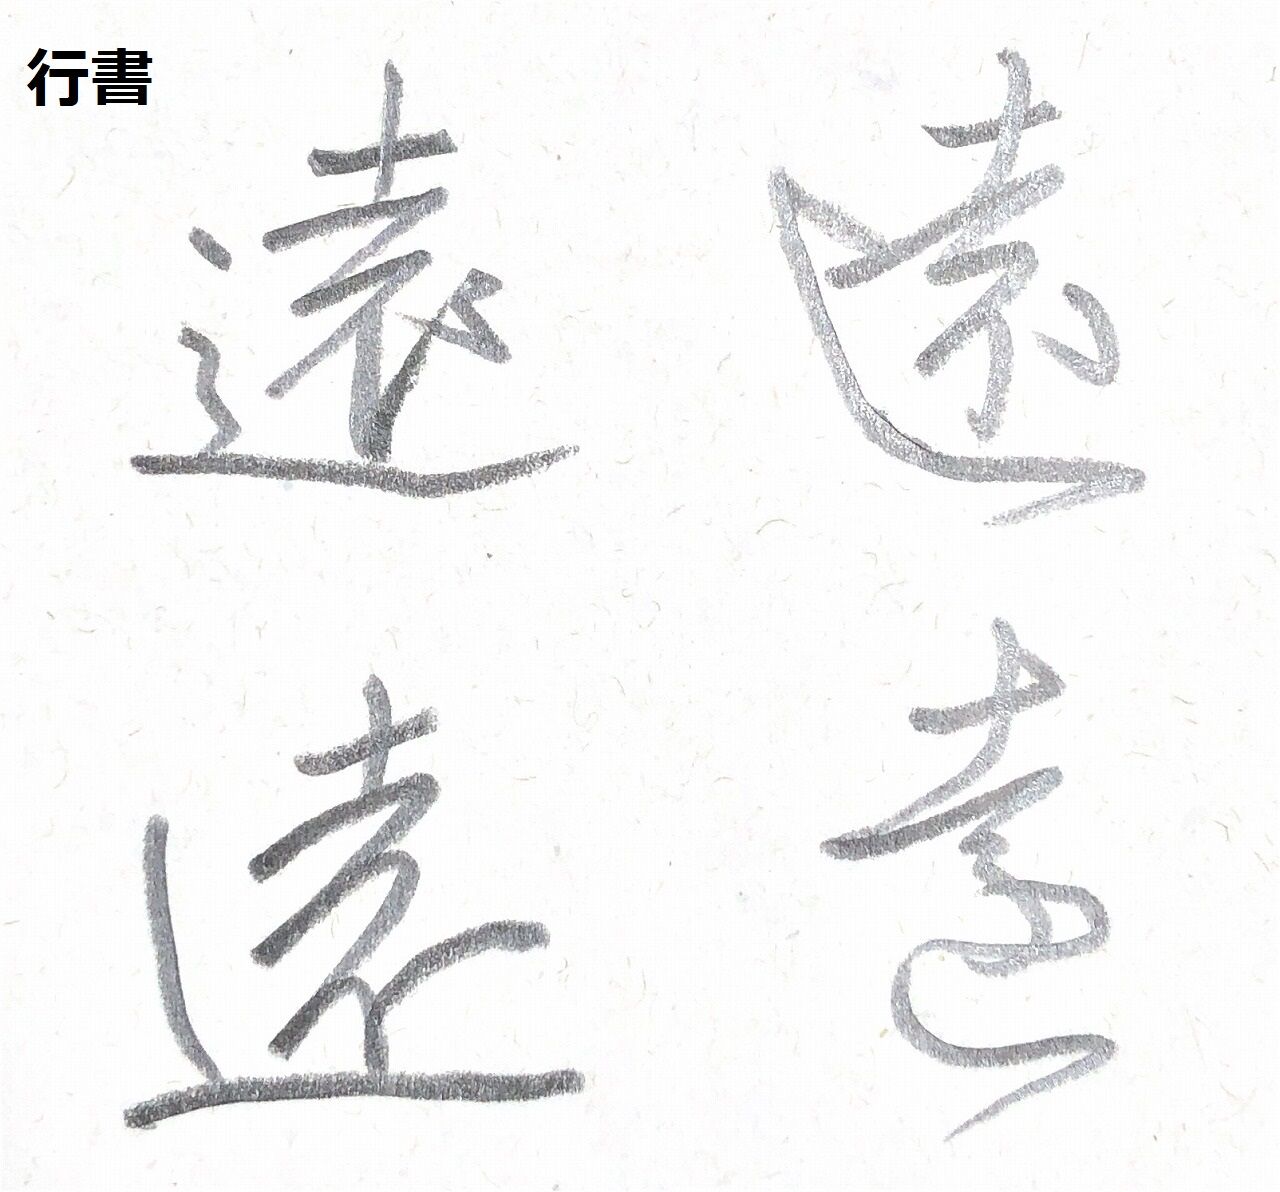 行書
遠 遠
遠 遠